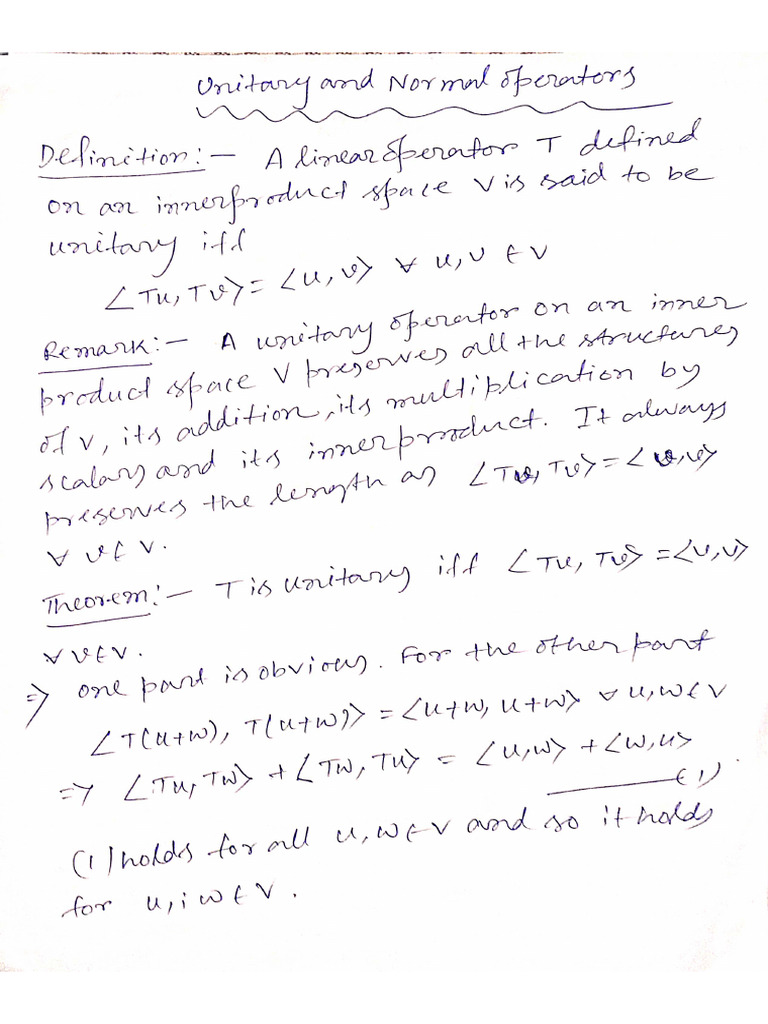 Unitary and Normal Operators
Definition:- A linear operator T defined
on an innerproduct space V is said to be
unitary iff
<Tu, Tv> = <u, v> ∀ u, v ∈ V
Remark:- A unitary operator on an inner
product space V preserves all the structures
of V, its addition, its multiplication by
scalars and its inner product. It always
preserves the length as <Tv, Tv> = <v, v>
∀ v ∈ V.
Theorem:- T is unitary iff <Tv, Tv> = <v, v>
∀ v ∈ V.
⇒ One part is obvious. For the other part
<T(u+w), T(u+w)> = <u+w, u+w> ∀ u, w ∈ V
⇒ <Tu, Tw> + <Tw, Tu> = <u, w> + <w, u>
(1)
(1) holds for all u, w ∈ V and so it holds
for u, i w ∈ V.